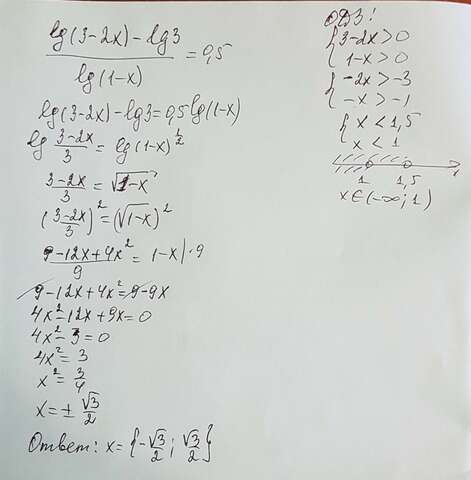 lg(3-2x)-lg3 / lg(1-x) = 0,5
lg(3-2x)-lg3=0,5lg(1-x)
lg (3-2x)/3 = lg(1-x)^(1/2)
(3-2x)/3 = √(1-x)
((3-2x)/3)² = (√(1-x))²
(9-12x+4x²)/9 = 1-x |·9
9-12x+4x²=9-9x
4x²-12x+9x=0
4x²-3=0
4x²=3
x²=3/4
x=±√3/2
Ответ: x={-√3/2; √3/2}
ОДЗ!
{3-2x>0
{1-x>0
{-2x>-3
{-x>-1
{x<1,5
x<1
1 1,5 x
x∈(-∞;1)